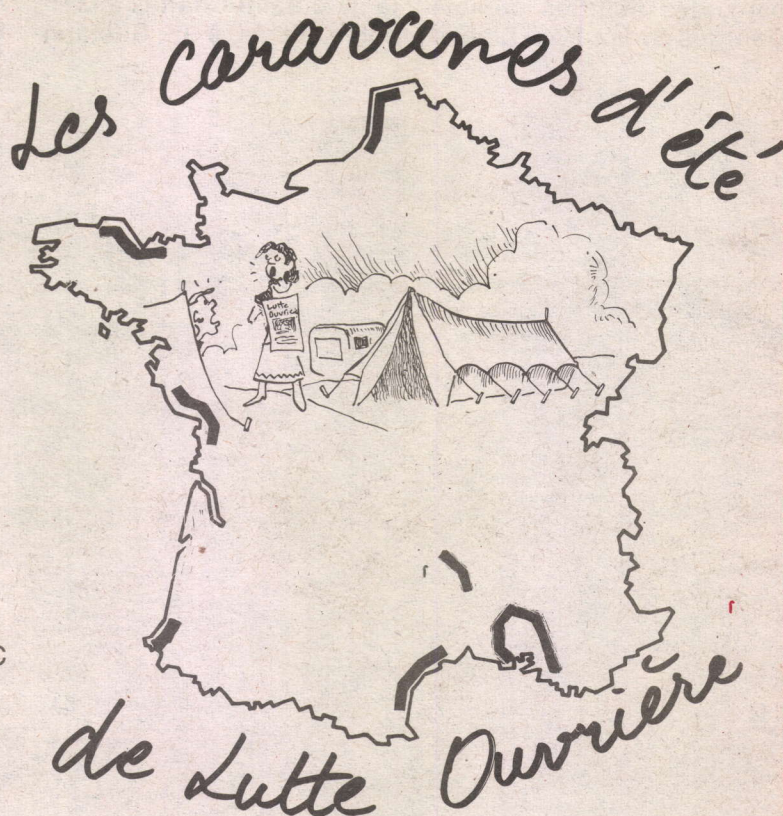 Les caravanes d'été
Lutte
Ouvrière
de Lutte Ouvrière